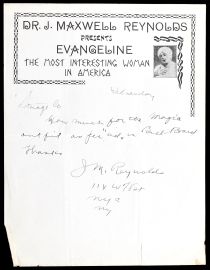 DR. J. MAXWELL REYNOLDS
PRESENTS
EVANGELINE
THE MOST INTERESTING WOMAN
IN AMERICA
How much for the Magic
outfit as per ad. in
Thanks
J M. Reynolds
NYC
NY